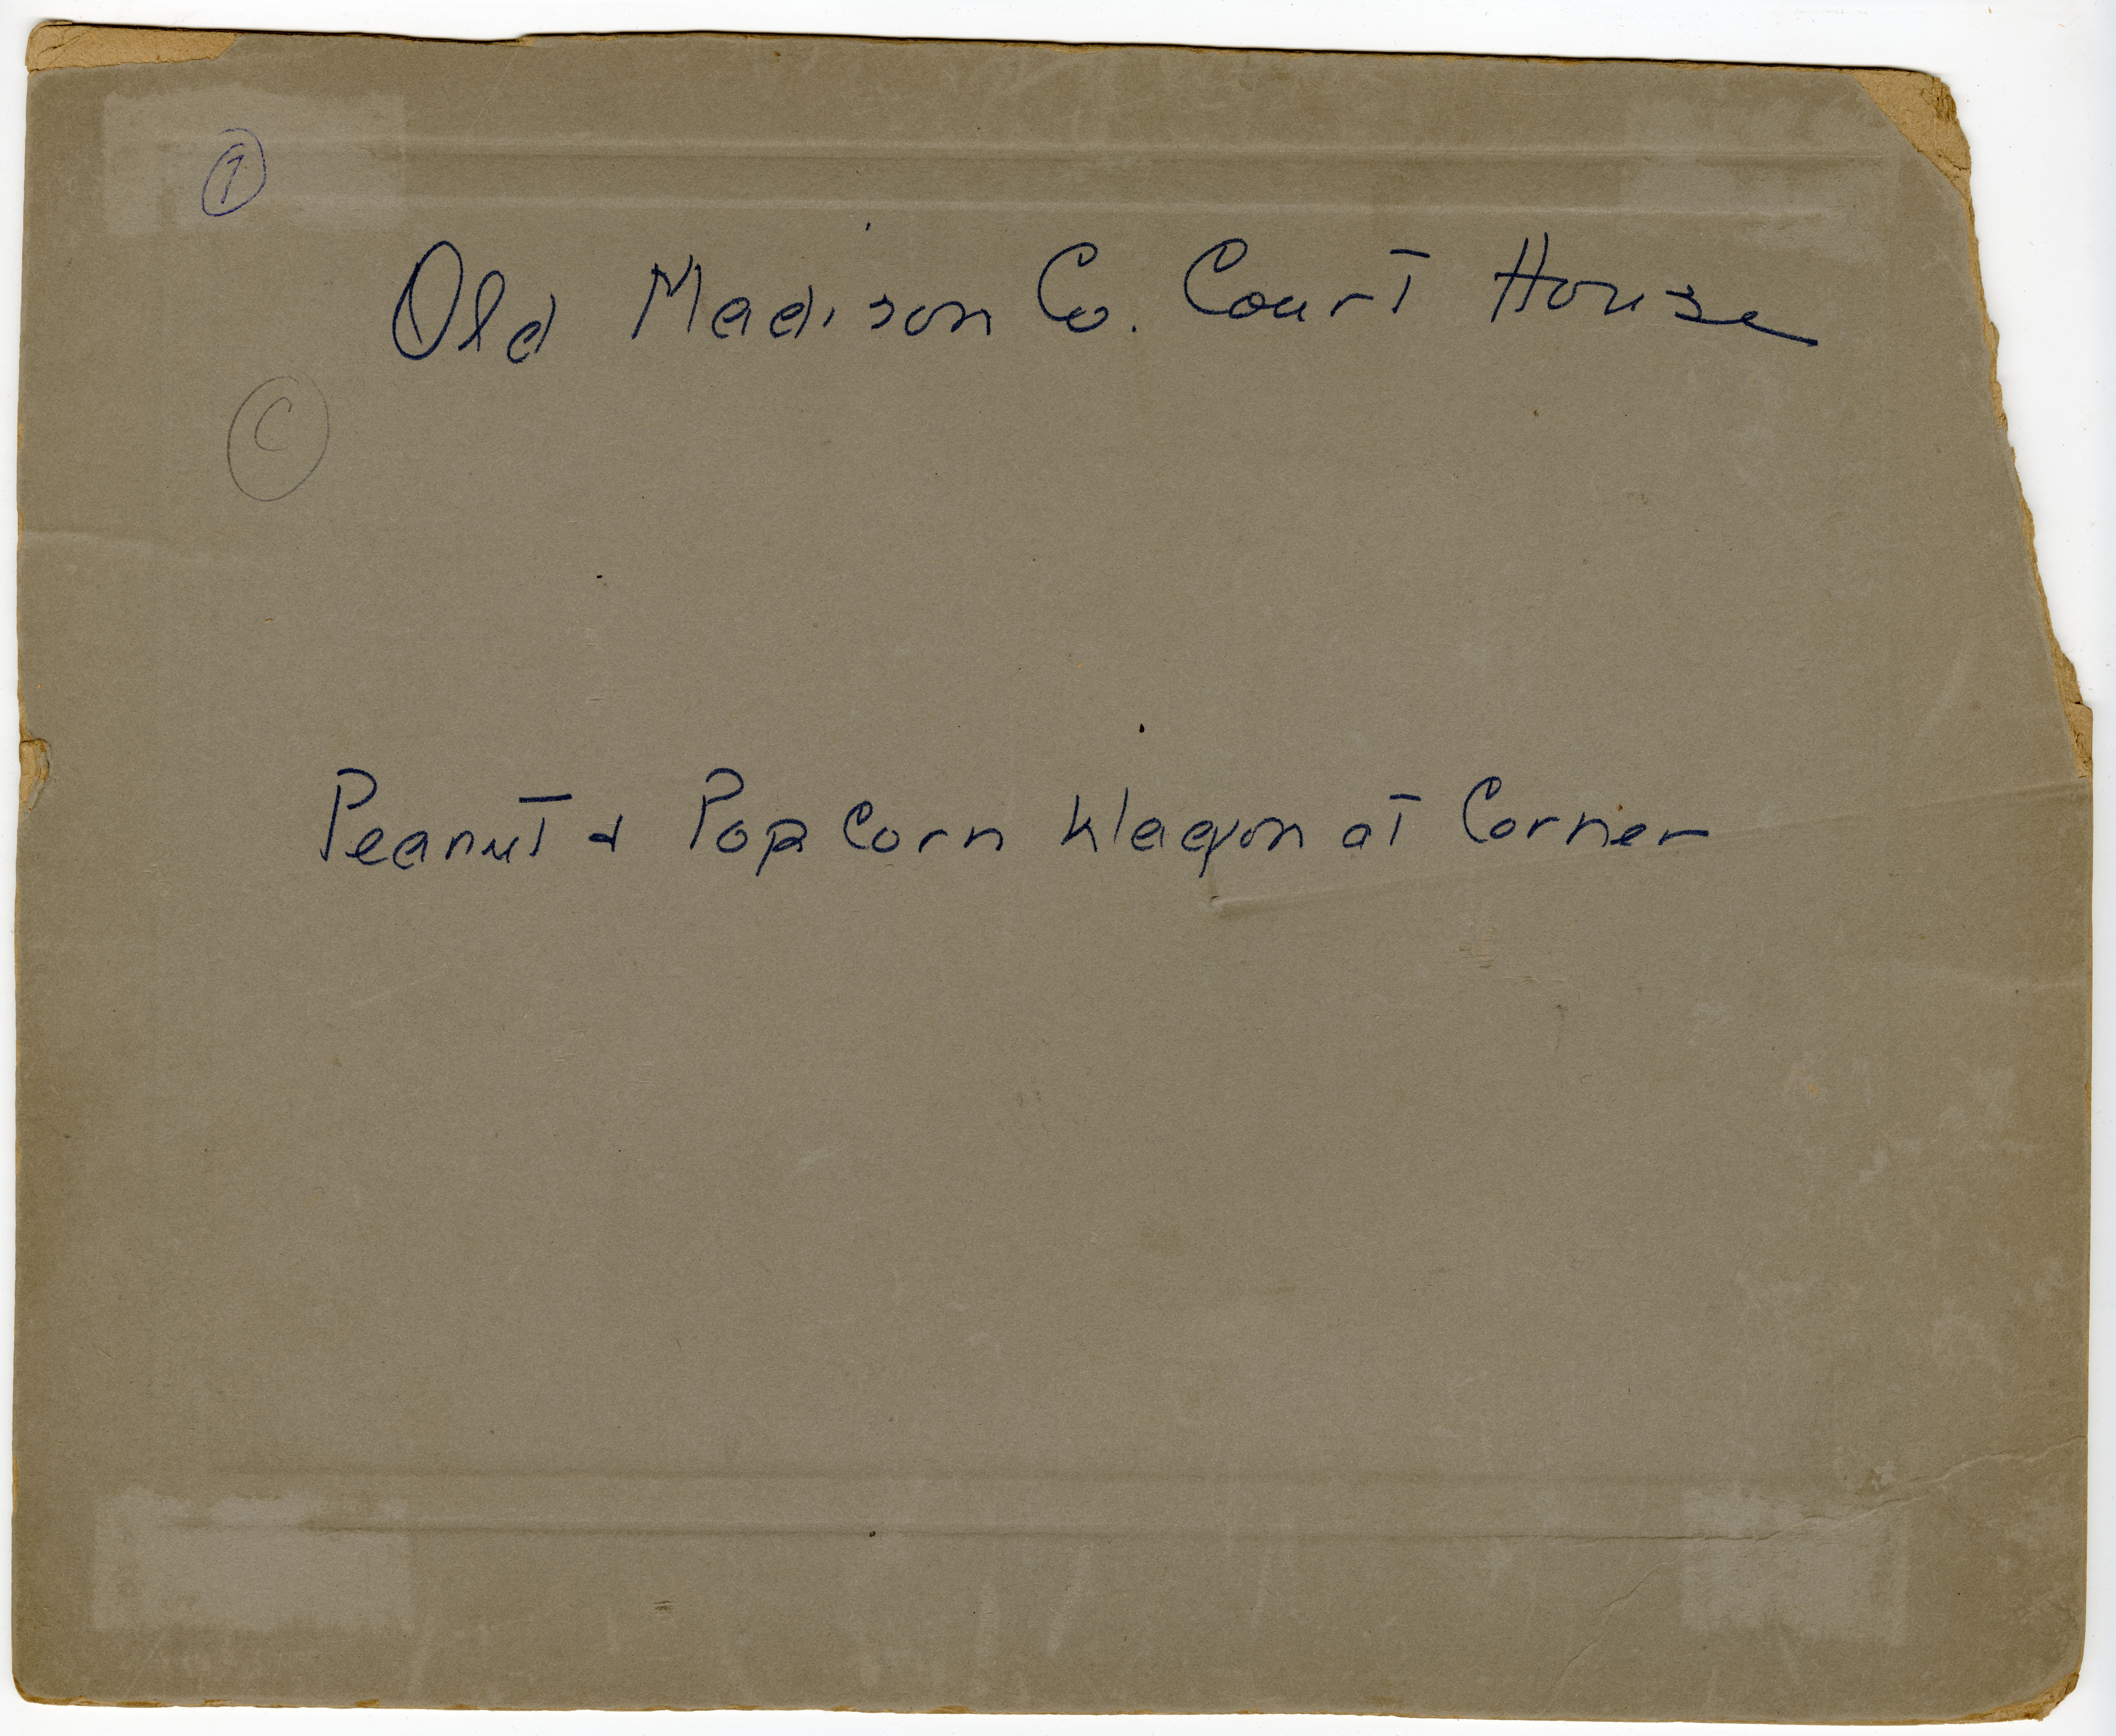 1
Old Madison Co. Court House
C
Peanut & Pop Corn Wagon at Corner